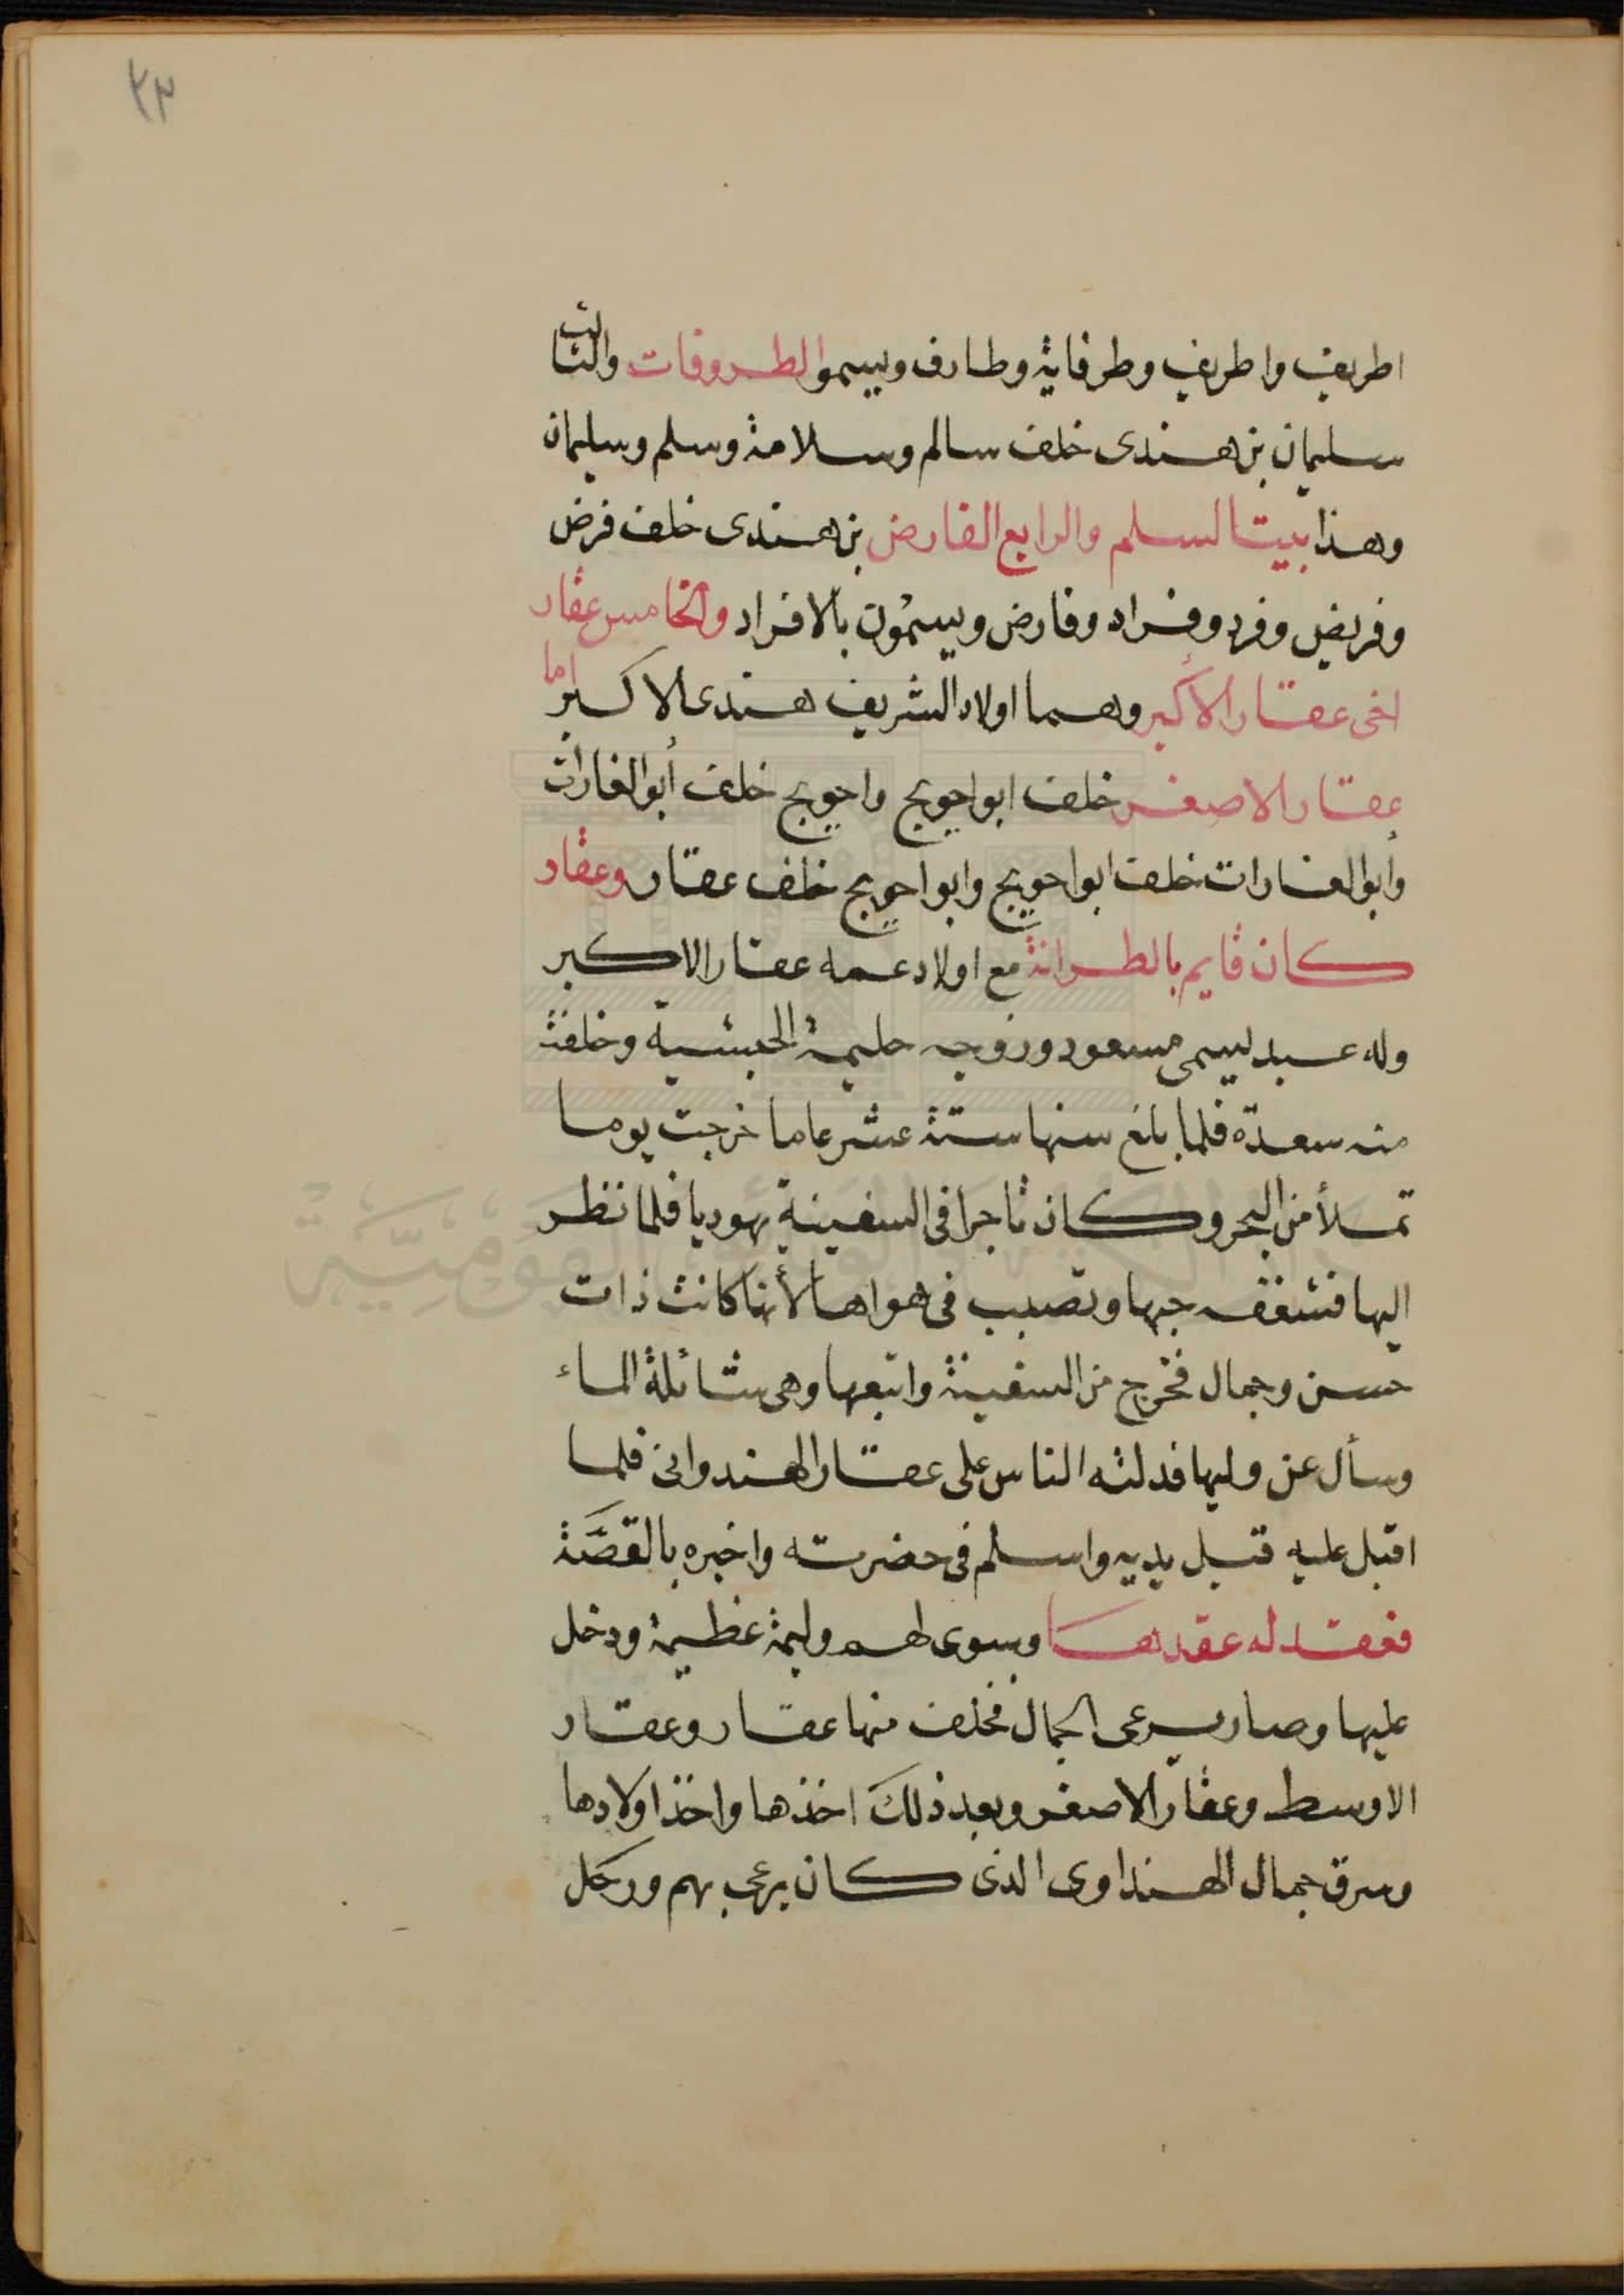 ٢٣
اطريف واطريف وطرفاية وطارف ويسموا الطروفات والثالث
سليمان بن هندى خلف سالم وسلامة وسلم وسليمان
وهذا بيت السلم والرابع الفارض بن هندى خلف فرض
وفريض وفرد وفراد وفارض ويسمون بالافراد والخامس عقار
اخى عقار الأكبر وهما اولاد الشريف هندى الاكبر اما
عقار الاصغر خلف ابو اجويج واجويج خلف أبو الغارات
وابو الغارات خلف ابو اجويج وابو اجويج خلف عقار وعقار
كان قايم بالطرانة مع اولاد عمه عقار الاكبر
وله عبد يسمى مسعود وزوجه حليمة الحبشية وخلفة
منه سعدة فلما بلغ سنها ستة عشر عاما خرجت يوما
تملأ من البحر وكان تاجرا فى السفينة يهوديا فلما نظر
اليها فشغف حبها وتصبب فى هواها لأنها كانت ذات
حسن وجمال فخرج من السفينة واتبعها وهى شائلة الماء
وسأل عن وليها فدلته الناس على عقار الهندوانى فلما
اقبل عليه قبل يديه واسلم فى حضرته واخبره بالقصّة
فعقد له عقدها وسوى لهم وليمة عظيمة ودخل
عليها وصار يسرعى الجمال فخلف منها عقار وعقار
الاوسط وعقار الاصغر وبعد ذلك اخذها واخذ اولادها
وسرق جمال الهنداوى الذى كان يرعى بهم ورحل
دار الكتب والوثائق القومية